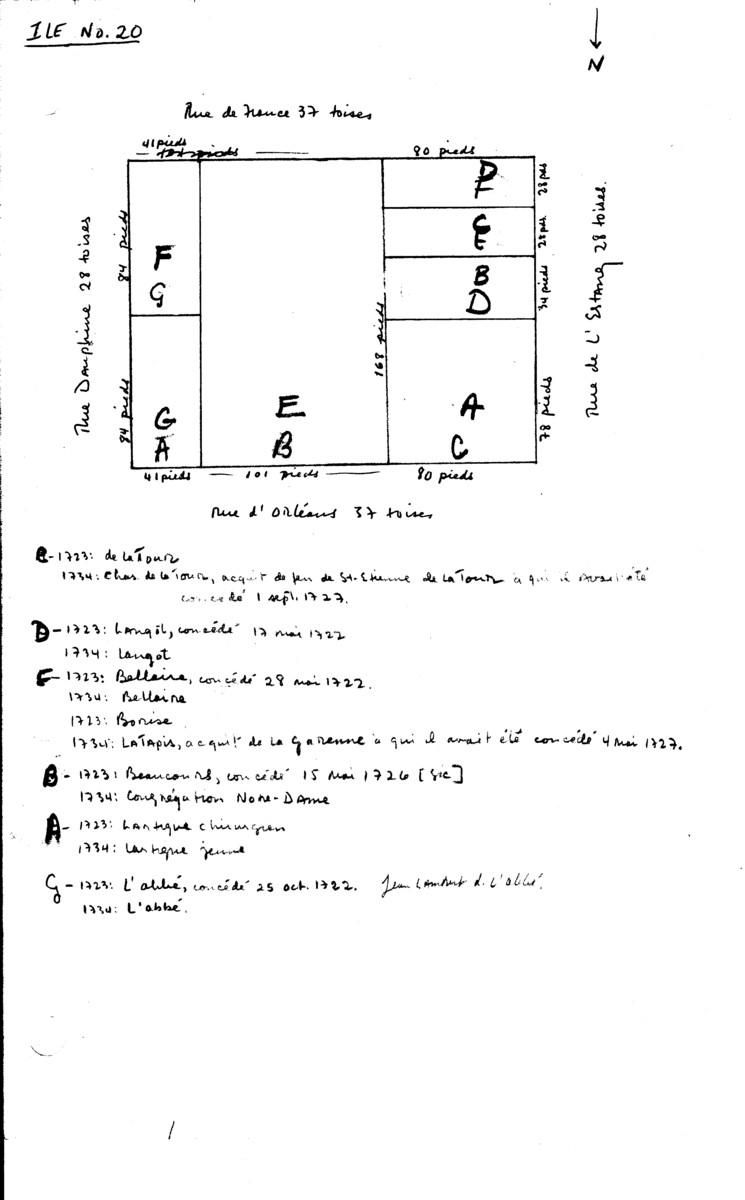 ILE No. 20
N
Rue de France 37 toises
41 pieds
80 pieds
D
F
28 pds
C
E
28 pds.
B
D
34 pieds
Rue Dauphine 28 toises
84 pieds
F
G
168 pieds
Rue de L'Estang 28 toises.
84 pieds
G
A
E
B
A
C
78 pieds
41 pieds
101 pieds
80 pieds
Rue d'Orléans 37 toises
C-1723: de la Tour
1734: Chas. de la Tour, acquit de feu de St-Etienne de la Tour à qui il avait été
concédé 1 sept. 1727.
D-1723: Langôt, concédé 17 mai 1722
1734: Langot
F-1723: Bellaire, concédé 28 mai 1722.
1734: Bellaire
1723: Borise
1734: LaTapis, acquit de la Garenne à qui il avait été concédé 4 mai 1727.
B-1723: Beaucours, concédé 15 mai 1726 [sic]
1734: Congrégation Notre-Dame
A-1723: Lartigue chirurgien
1734: Lartigue jeune
G-1723: L'abbé, concédé 25 oct. 1722. Jean Lambert d. L'abbé.
1734: L'abbé.
1